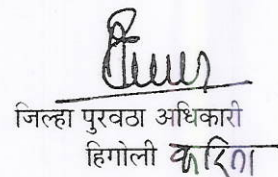 जिल्हा पुरवठा अधिकारी
हिगोली करिता